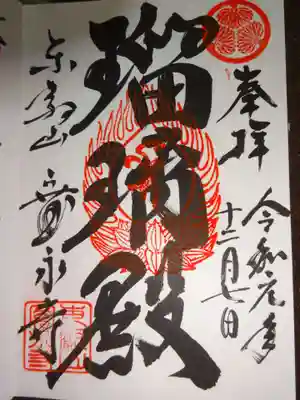 奉拝
令和元年
十二月七日
瑠璃殿
東叡山
寛永寺